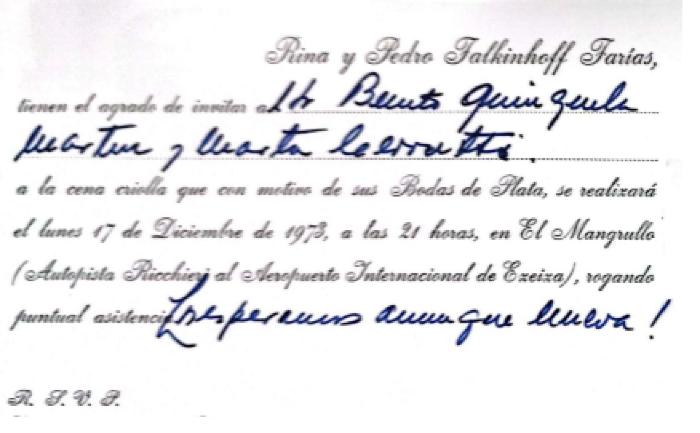 Rina y Pedro Talkinhoff Farías,
tienen el agrado de invitar a Sr Benito Quinquela
Martin y Marta Cerruti.
a la cena criolla que con motivo de sus Bodas de Plata, se realizará
el lunes 17 de Diciembre de 1973, a las 21 horas, en El Mangrullo
(Autopista Ricchieri al Aeropuerto Internacional de Ezeiza), rogando
puntual asistencia Los esperamos aunque llueva!
R. S. V. P.